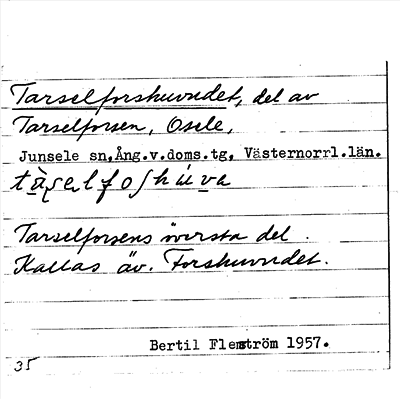 Tarselforshuvudet, del av
Tarselforsen, Osele,
Junsele sn, Ång.v.doms.tg, Västernorrl.län.
Tarselforsens översta del.
Kallas äv. Forshuvudet.
Bertil Flemström 1957.
35